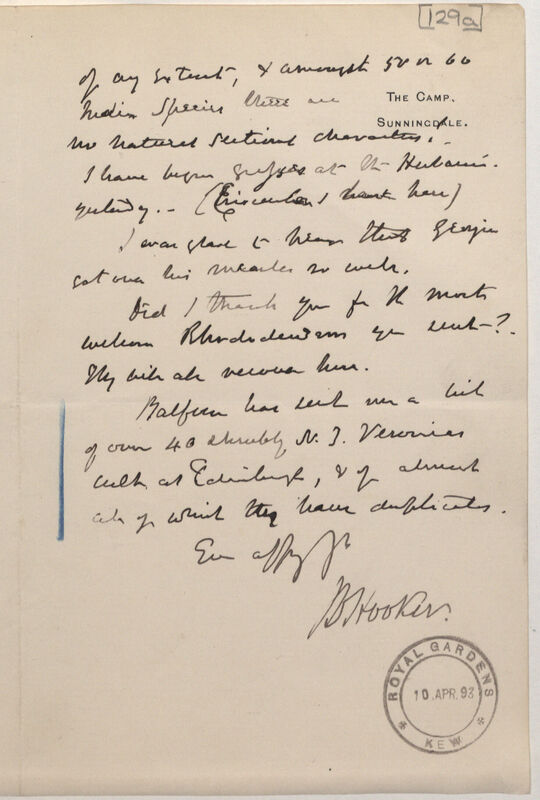 [129a]
of any extent, & amongst 50 or 60
THE CAMP.
Indian Species there are
SUNNINGDALE.
no natural sectional characters.
I have begun grasses at the Herbarium.
yesterday. - ( I have here)
I was glad to hear that Georgie
got over his measles so well.
Did I thank you for the most
welcome Rhododendrons you sent?
They will all recover here.
Balfour has sent me a list
of over 40 shrubby N. Z. Veronicas
cult. at Edinburgh, & of almost
all of which they have duplicates.
Ev affy yr
JDHooker.
ROYAL GARDENS
10.APR.93
KEW